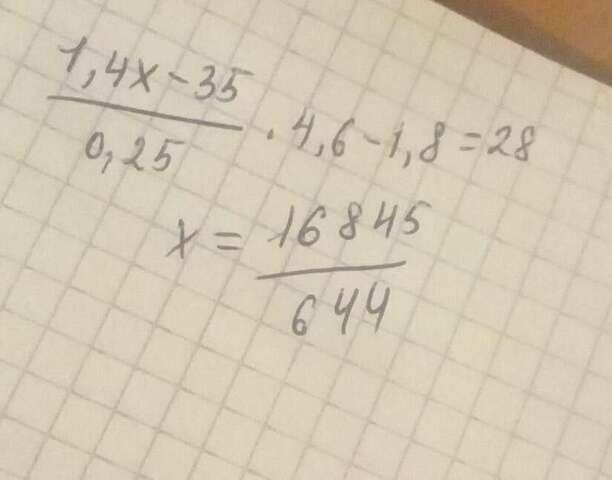 1,4x-35
0,25
· 4,6-1,8=28
x=
16845
644